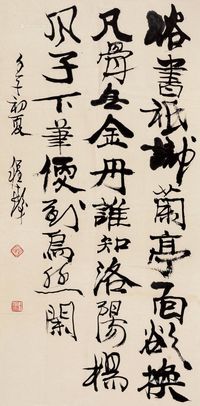 俗書祇識蘭亭面欲換
凡骨無金丹誰知洛陽楊
风子下筆便到烏絲闌
初夏